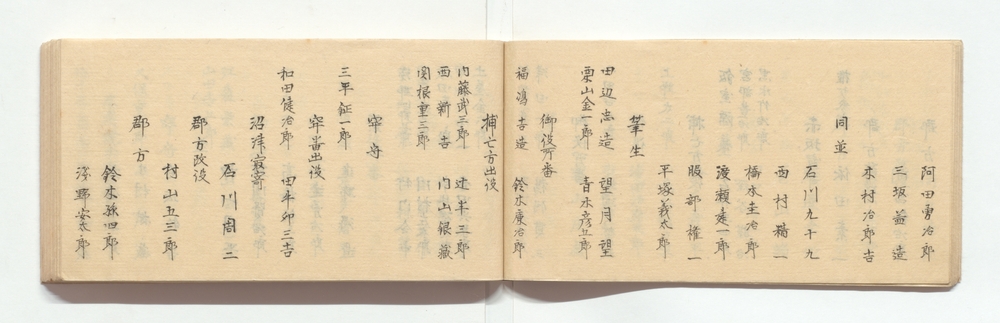 阿田勇治郎
三坂益造
木村治郎吉
同並
石川九十九
西村精一
橋本圭治郎
渡瀬建一郎
服部権一
平塚義太郎
筆生
田辺忠造 望月望
栗山金一郎 青木彦五郎
御役所番
福嶋吉造 鈴木廉治郎
捕亡方出役
内藤武三郎 辻半三郎
西新吉 内山銀蔵
関根重三郎
牢守
三平征一郎
牢番出役
和田健治郎 田平卯三吉
沼津寂寄
石川周二
郡方改役
村山五三郎
郡方
鈴木孫四郎
浅野安太郎